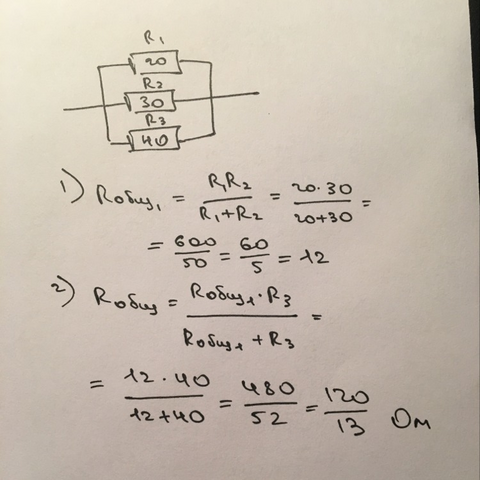 R1
20
R2
30
R3
40
1) Rобщ1 = R1R2 / R1+R2 = 20·30 / 20+30 =
= 600 / 50 = 60 / 5 = 12
2) Rобщ = Rобщ1·R3 / Rобщ1+R3 =
= 12·40 / 12+40 = 480 / 52 = 120 / 13 Ом